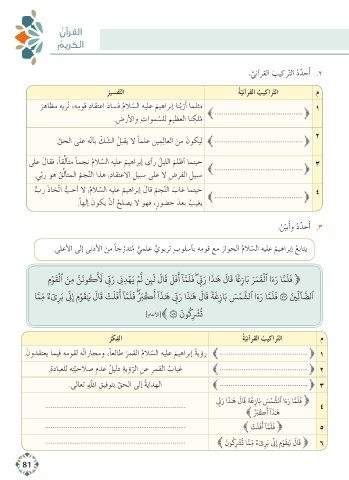 القرآن
الكريم
٢. أحدّدُ التركيبَ القرآنيَّ.
م
التراكيبُ القرآنيّةُ
التفسيرُ
١
﴿ ........................................ ﴾
مثلما أرَيْنا إبراهيمَ عليه السلامُ فسادَ اعتقادِ قومِه، نُريه مظاهرَ
مُلكِنا العظيمِ للسمواتِ والأرضِ.
٢
﴿ ........................................ ﴾
ليكونَ منَ العالِمينَ علماً لا يقبلُ الشكَّ بأنّه على الحقِّ
٣
﴿ ........................................ ﴾
حينما أظلمَ الليلُ رأى إبراهيمُ عليه السلامُ نجماً متألّقاً، فقالَ على
سبيلِ الفرضِ لا على سبيلِ الاعتقادِ، هذا النجمُ المتألّقُ هو ربّي.
٤
﴿ ........................................ ﴾
حينما غابَ النجمُ قالَ إبراهيمُ عليه السلامُ، لا أحبُّ اتّخاذَ ربٍّ
يغيبُ بعدَ حضورٍ، فهو لا يصلحُ أنْ يكونَ إلهاً.
٣. أحدّدُ وأبيّنُ.
يتابعُ إبراهيمُ عليه السلامُ الحوارَ مع قومِه بأسلوبٍ تربويٍّ علميٍّ متدرّجاً منَ الأدنى إلى الأعلى.
﴿ فَلَمَّا رَءَا ٱلْقَمَرَ بَازِغًا قَالَ هَٰذَا رَبِّي فَلَمَّآ أَفَلَ قَالَ لَئِن لَّمْ يَهْدِنِي رَبِّي لَأَكُونَنَّ مِنَ ٱلْقَوْمِ
ٱلضَّآلِّينَ ۝ فَلَمَّا رَءَا ٱلشَّمْسَ بَازِغَةً قَالَ هَٰذَا رَبِّي هَٰذَآ أَكْبَرُ فَلَمَّآ أَفَلَتْ قَالَ يَٰقَوْمِ إِنِّي بَرِيٓءٌ مِّمَّا
تُشْرِكُونَ ۝ ﴾ [الأنعام]
م
التراكيبُ القرآنيّةُ
الفكَرُ
١
﴿ ........................................ ﴾
رؤيةُ إبراهيمَ عليه السلامُ القمرَ طالعاً، ومجاراتُه لقومِه فيما يعتقدونَ.
٢
﴿ ........................................ ﴾
غيابُ القمرِ عنِ الرؤيةِ دليلُ عدمِ صلاحيّتِه للعبادةِ.
٣
﴿ ........................................ ﴾
الهدايةُ إلى الحقِّ بتوفيقِ اللهِ تعالى.
٤
﴿ فَلَمَّا رَءَا ٱلشَّمْسَ بَازِغَةً قَالَ هَٰذَا رَبِّي
هَٰذَآ أَكْبَرُ ﴾
........................................
٥
﴿ فَلَمَّآ أَفَلَتْ ﴾
........................................
٦
﴿ قَالَ يَٰقَوْمِ إِنِّي بَرِيٓءٌ مِّمَّا تُشْرِكُونَ ﴾
........................................
81